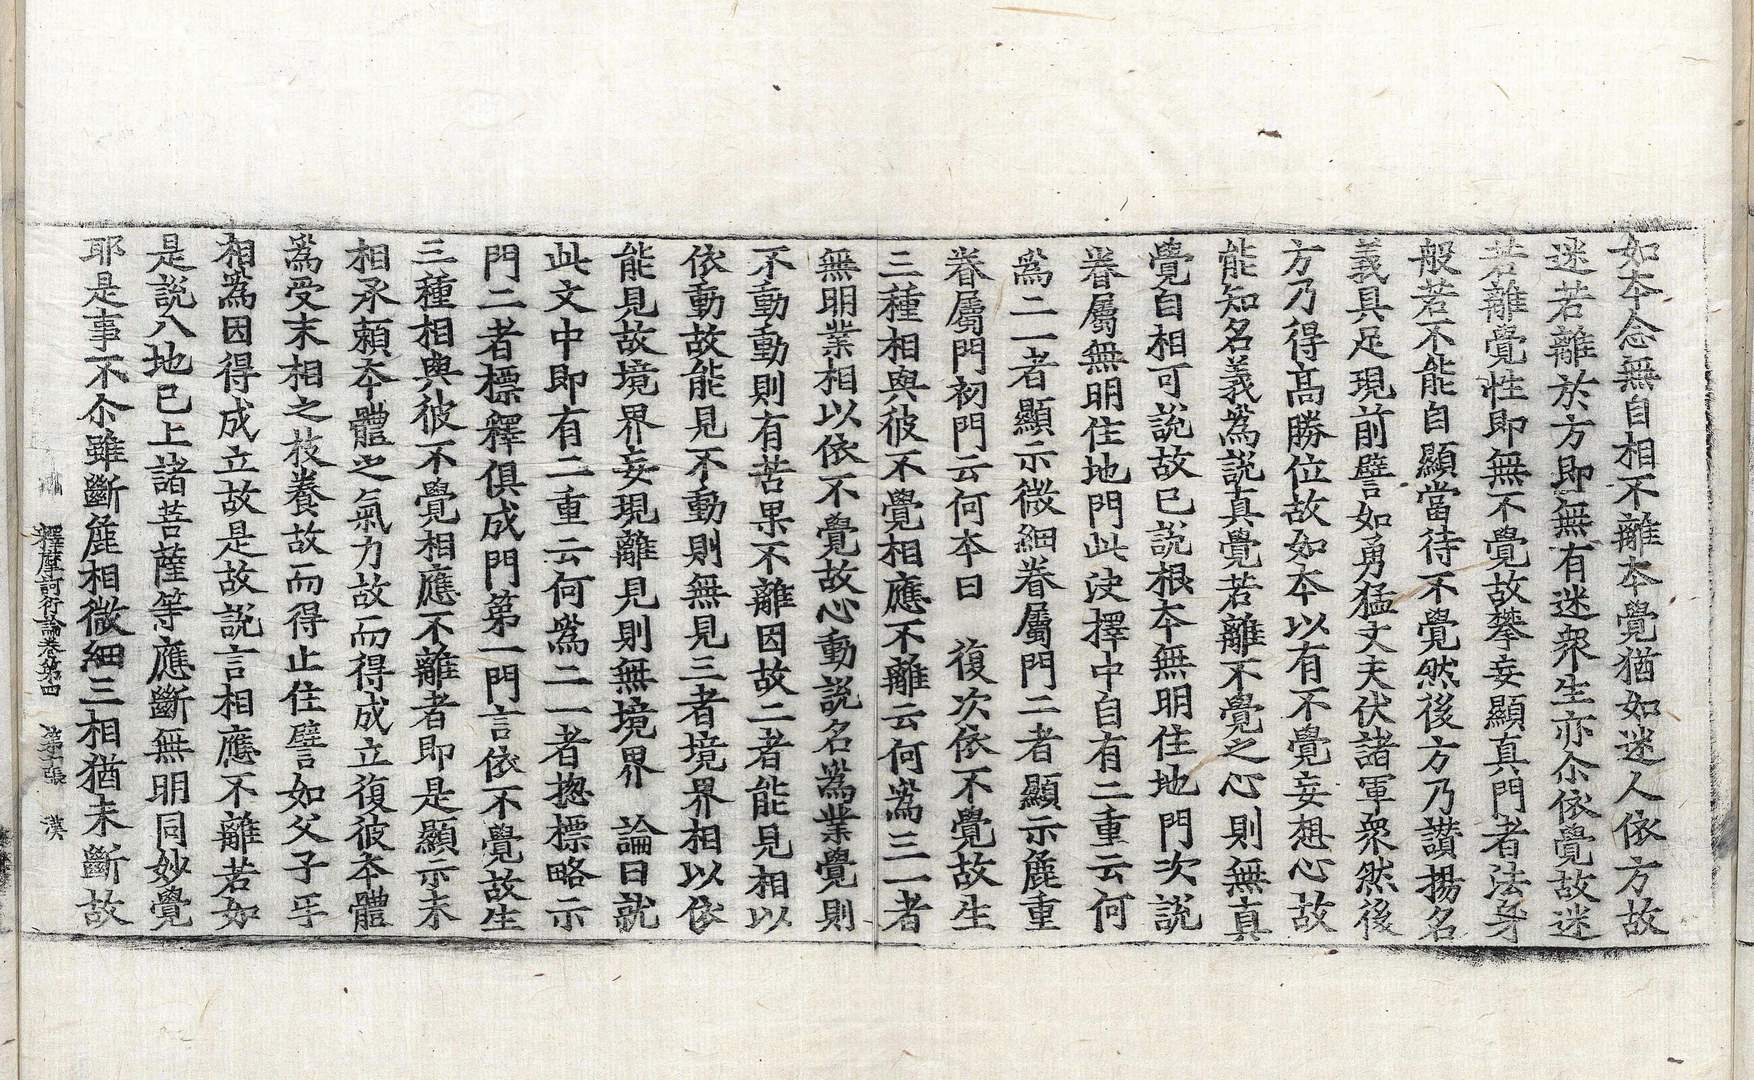 如本念無自相不離本覺猶如迷人依方故
迷若離於方即無有迷衆生亦尒依覺故迷
若離覺性即無不覺故攀妄顯真門者法身
般若不能自顯當待不覺然後方乃讃揚名
義具足現前譬如勇猛丈夫伏諸軍衆然後
方乃得高勝位故如本以有不覺妄想心故
能知名義爲說真覺若離不覺之心則無真
覺自相可說故已說根本無明住地門次說
眷屬無明住地門此決擇中自有二重云何
爲二一者顯示微細眷屬門二者顯示麁重
眷屬門初門云何本曰　復次依不覺故生
三種相與彼不覺相應不離云何爲三一者
無明業相以依不覺故心動說名爲業覺則
不動動則有苦果不離因故二者能見相以
依動故能見不動則無見三者境界相以依
能見故境界妄現離見則無境界　論曰就
此文中即有二重云何爲二一者揔標略示
門二者標釋俱成門第一門言依不覺故生
三種相與彼不覺相應不離者即是顯示末
相承賴本體之氣力故而得成立復彼本體
爲受末相之枝養故而得止住譬如父子乎
相爲因得成立故是故說言相應不離若如
是說八地已上諸菩薩等應斷無明同妙覺
耶是事不尒雖斷麁相微細三相猶未斷故
釋摩訶衍論卷第四　第　張　漢